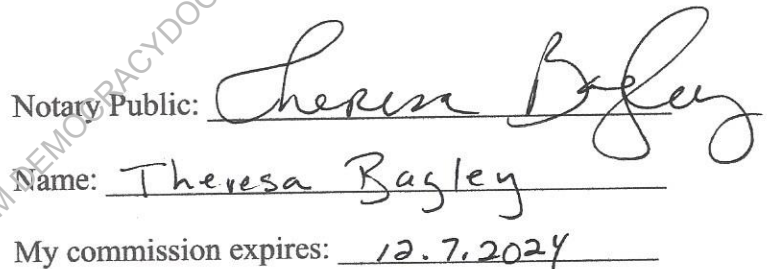 Notary Public: Theresa Bagley
Name: Theresa Bagley
My commission expires: 12.7.2024
DEMOCRACYDOC